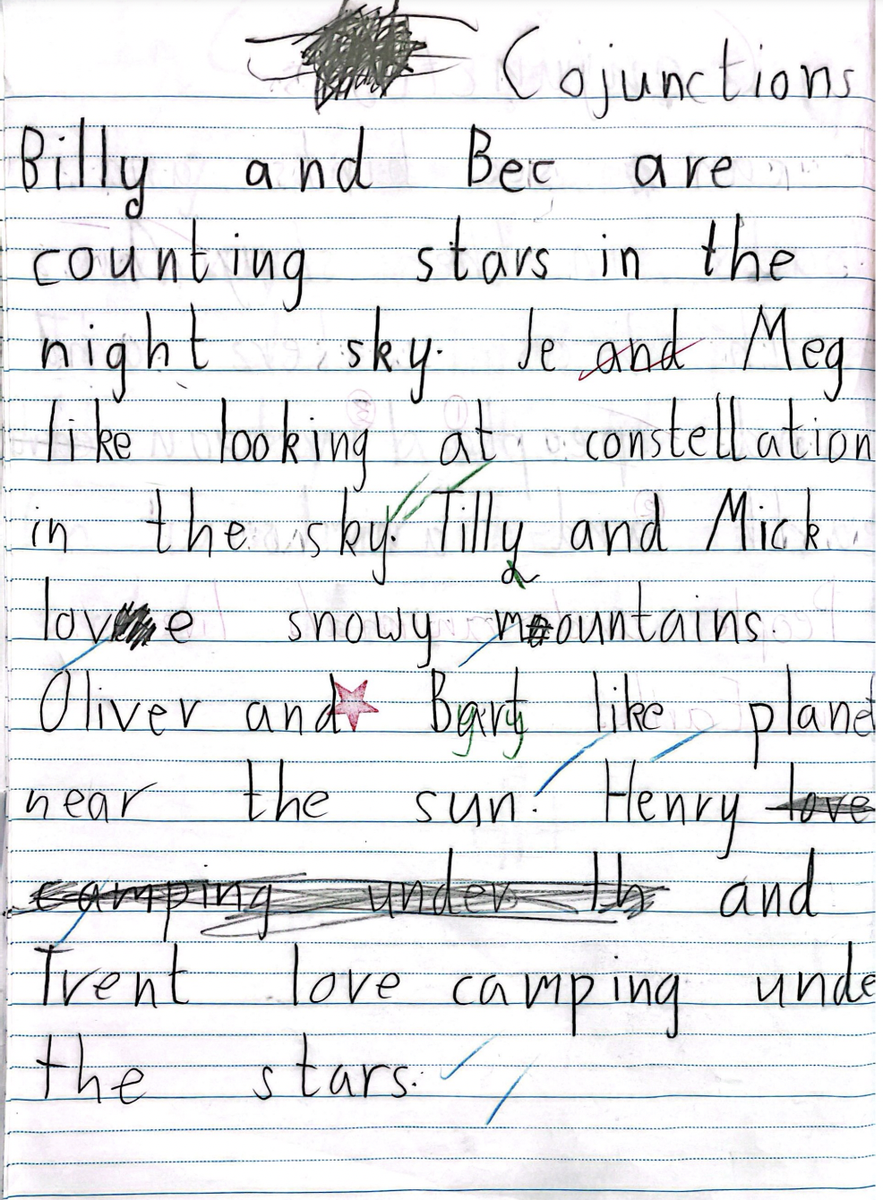 Cojunctions
Billy and Bec are
counting stars in the
night sky. Je and Meg
like looking at constellation
in the sky. Tilly and Mick
love snowy mountains.
Oliver and Barty like planet
near the sun. Henry love
camping under th and
Trent love camping unde
the stars.